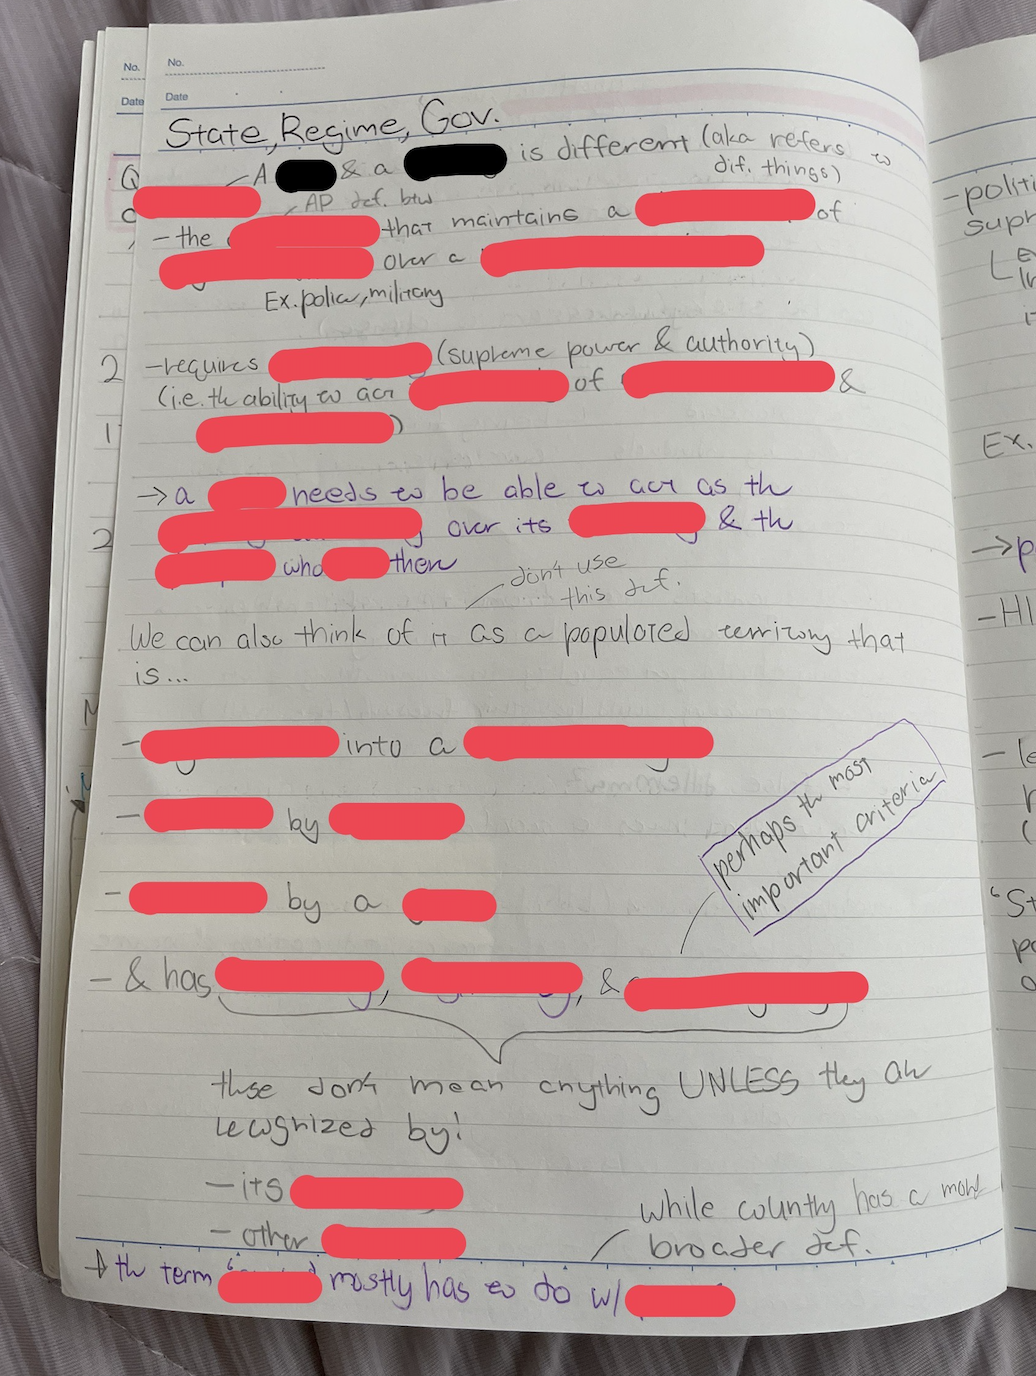 No.
No.
Date
Date
State, Regime, Gov.
A & a is different (aka refers to
dif. things)
AP def. btw
- the that maintains a of
over a
Ex. police, military
2
- requires (supreme power & authority)
(i.e. th ability to act of &
)
→ a needs to be able to act as th
over its & th
who them
don't use
this def.
We can also think of it as a populated territory that
is...
- into a
- by
- by a
- & has , , &
perhaps th most
important criteria
these don't mean anything UNLESS they are
recognized by:
- its
- other
while country has a more
broader def.
→ th term mostly has to do w/
- politi
supr
Ex.
→ p
- HI
- le
"St
po